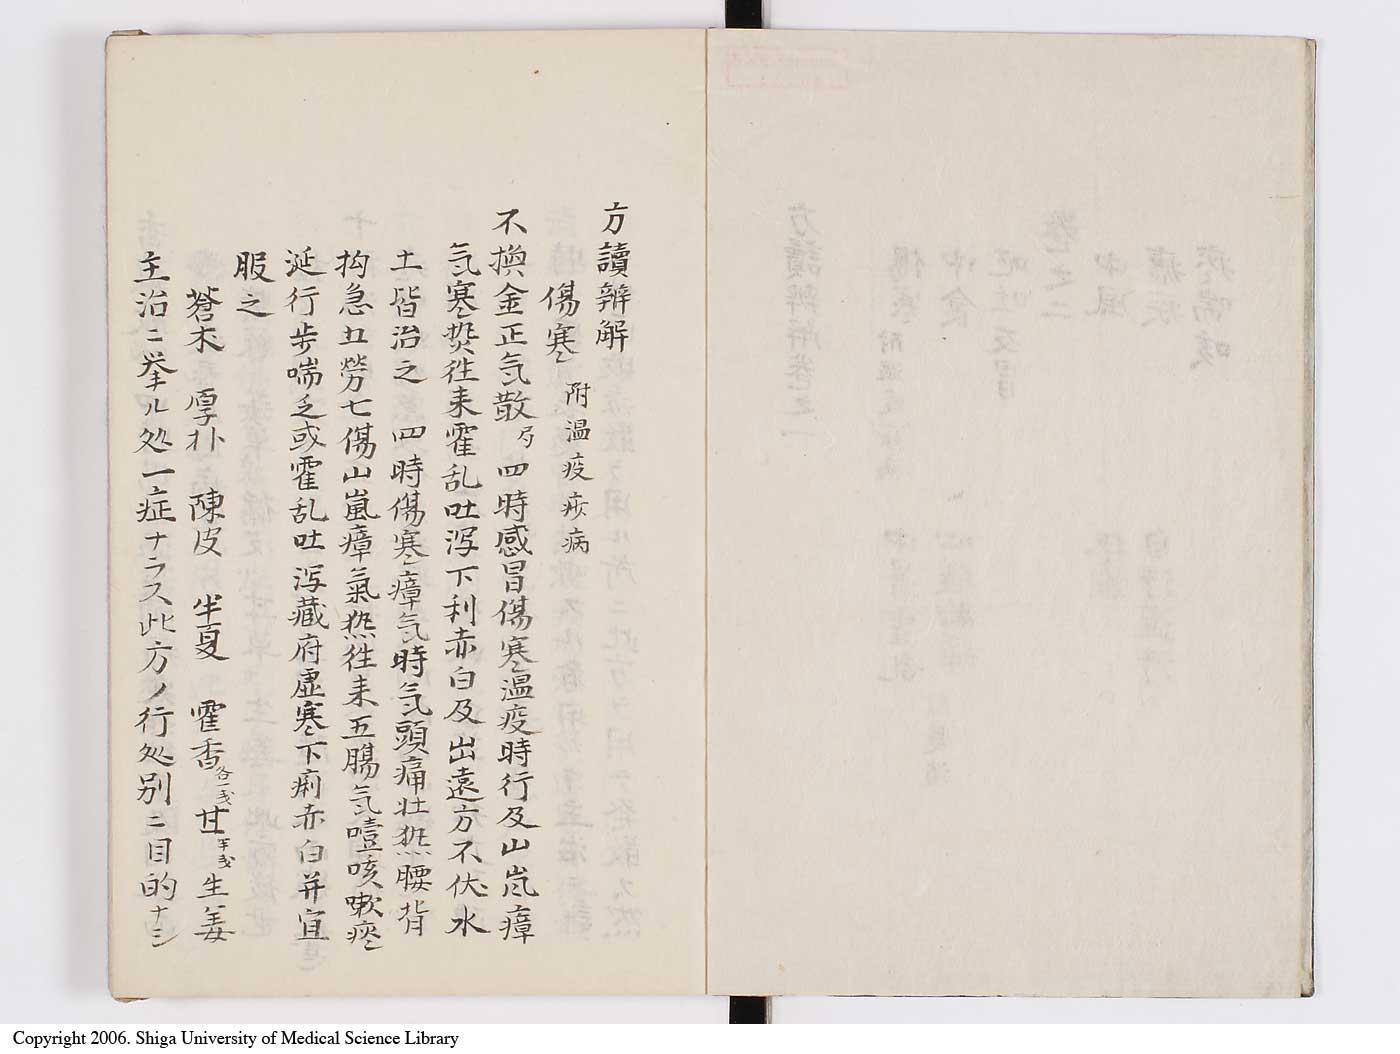 方讀辨解
傷寒 附温疫疾病
不換金正気散 局 四時感冒傷寒温疫時行及山嵐瘴
気寒熱往来霍乱吐泻下利赤白及出遠方不伏水
土皆治之 四時傷寒瘴気時気頭痛壮熱腰背
拘急五勞七傷山嵐瘴氣熱往来五膈気噎咳嗽痰
涎行歩喘乏或霍乱吐泻蔵府虚寒下痢赤白并宜
服之
蒼朮 厚朴 陳皮 半夏 霍香各一戔甘半戔生姜
主治ニ挙ル処一症ナラス此方ノ行処別ニ目的ナシ
Copyright 2006. Shiga University of Medical Science Library